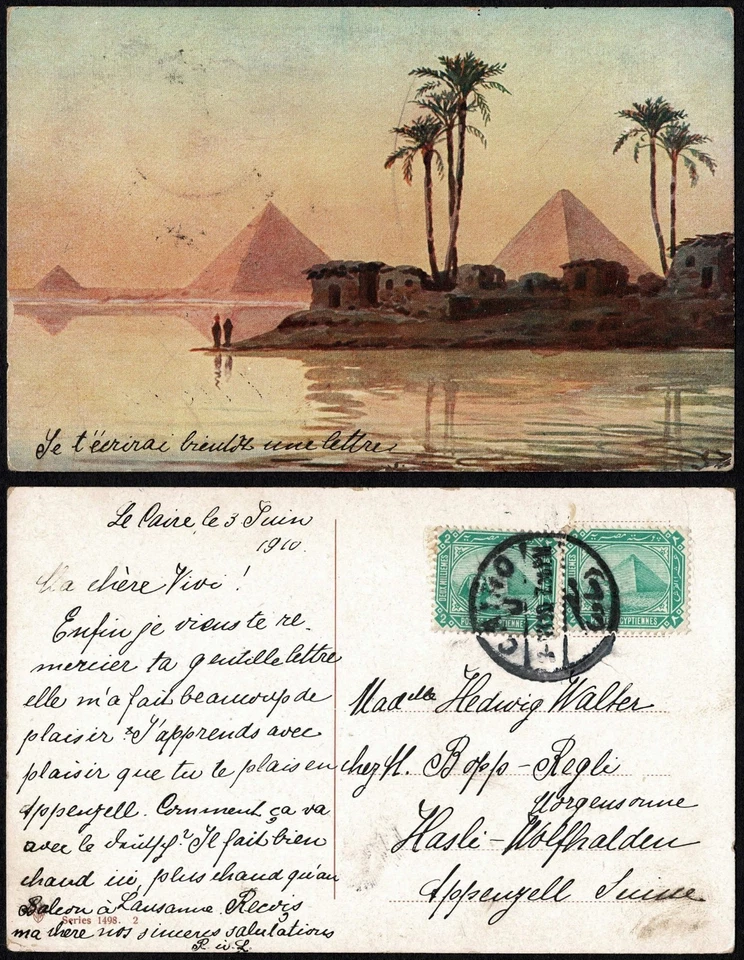 Je t'écrirai bientôt une lettre
Le Caire, le 3 Juin
1910.
Ma chère Vivi !
Enfin je viens te re-
mercier ta gentille lettre
elle m'a fait beaucoup de
plaisir J'apprends avec
plaisir que tu te plais en
Appenzell. Comment ça va
avec le Il fait bien
chaud ici, plus chaud qu'au
Balcon à Lausanne. Reçois
ma chère nos sincères salutations
Series 1498. 2
2 2
DEUX MILLIEMES
2 POSTES EGYPTIENNES 2
CAIRO
Madelle Hedwig Walter
chez H. Bopp-Regli
Morgensonne
Hasli-Wolfhalden
Appenzell Suisse